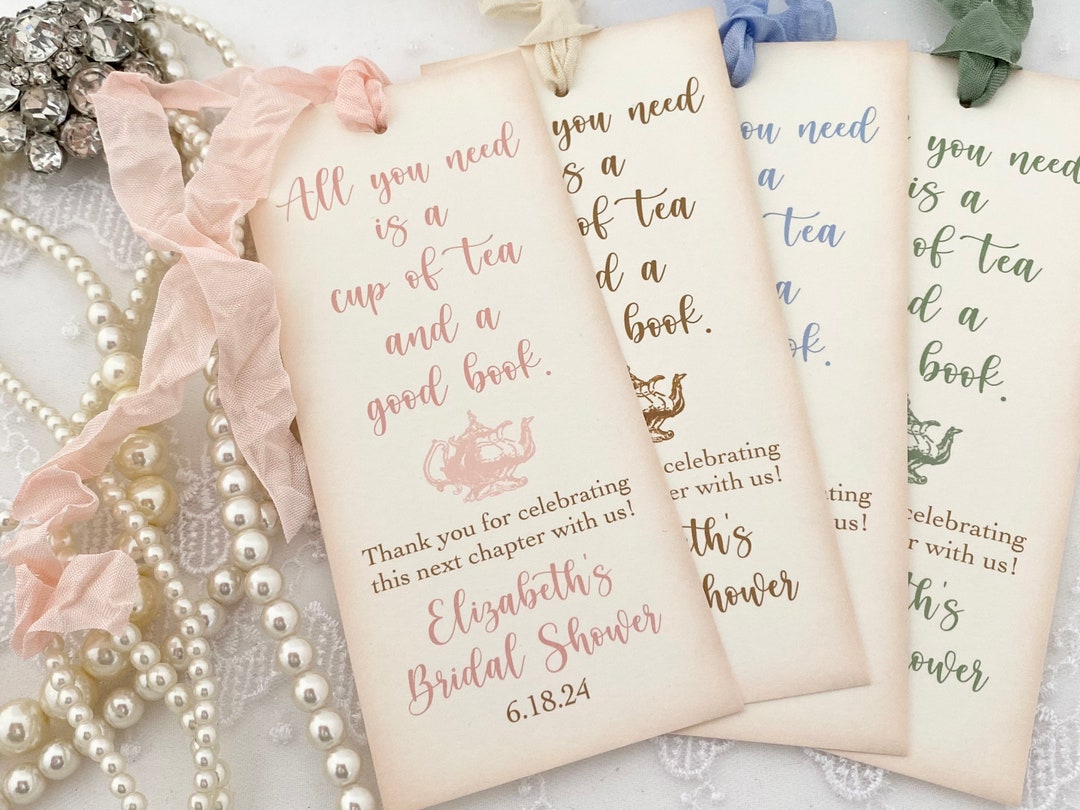 All you need
is a
cup of tea
and a
good book.
Thank you for celebrating
this next chapter with us!
Elizabeth's
Bridal Shower
6.18.24
you need
is a
of tea
a
book.
celebrating
with us!
need
a
tea
a
us!
you need
is a
of tea
a
book.
celebrating
with us!